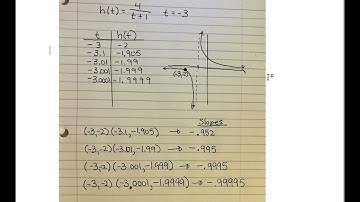 h(t) = 4/t+1 t = -3
t h(t)
-3 -2
-3.1 -1.905
-3.01 -1.99
-3.001 -1.999
-3.0001 -1.9999
(-3,-2)
Slopes
(-3,-2)(-3.1,-1.905) → -.952
(-3,-2)(-3.01,-1.99) → -.995
(-3,-2)(-3.001,-1.999) → -.9995
(-3,-2)(-3.0001,-1.9999) → -.99995